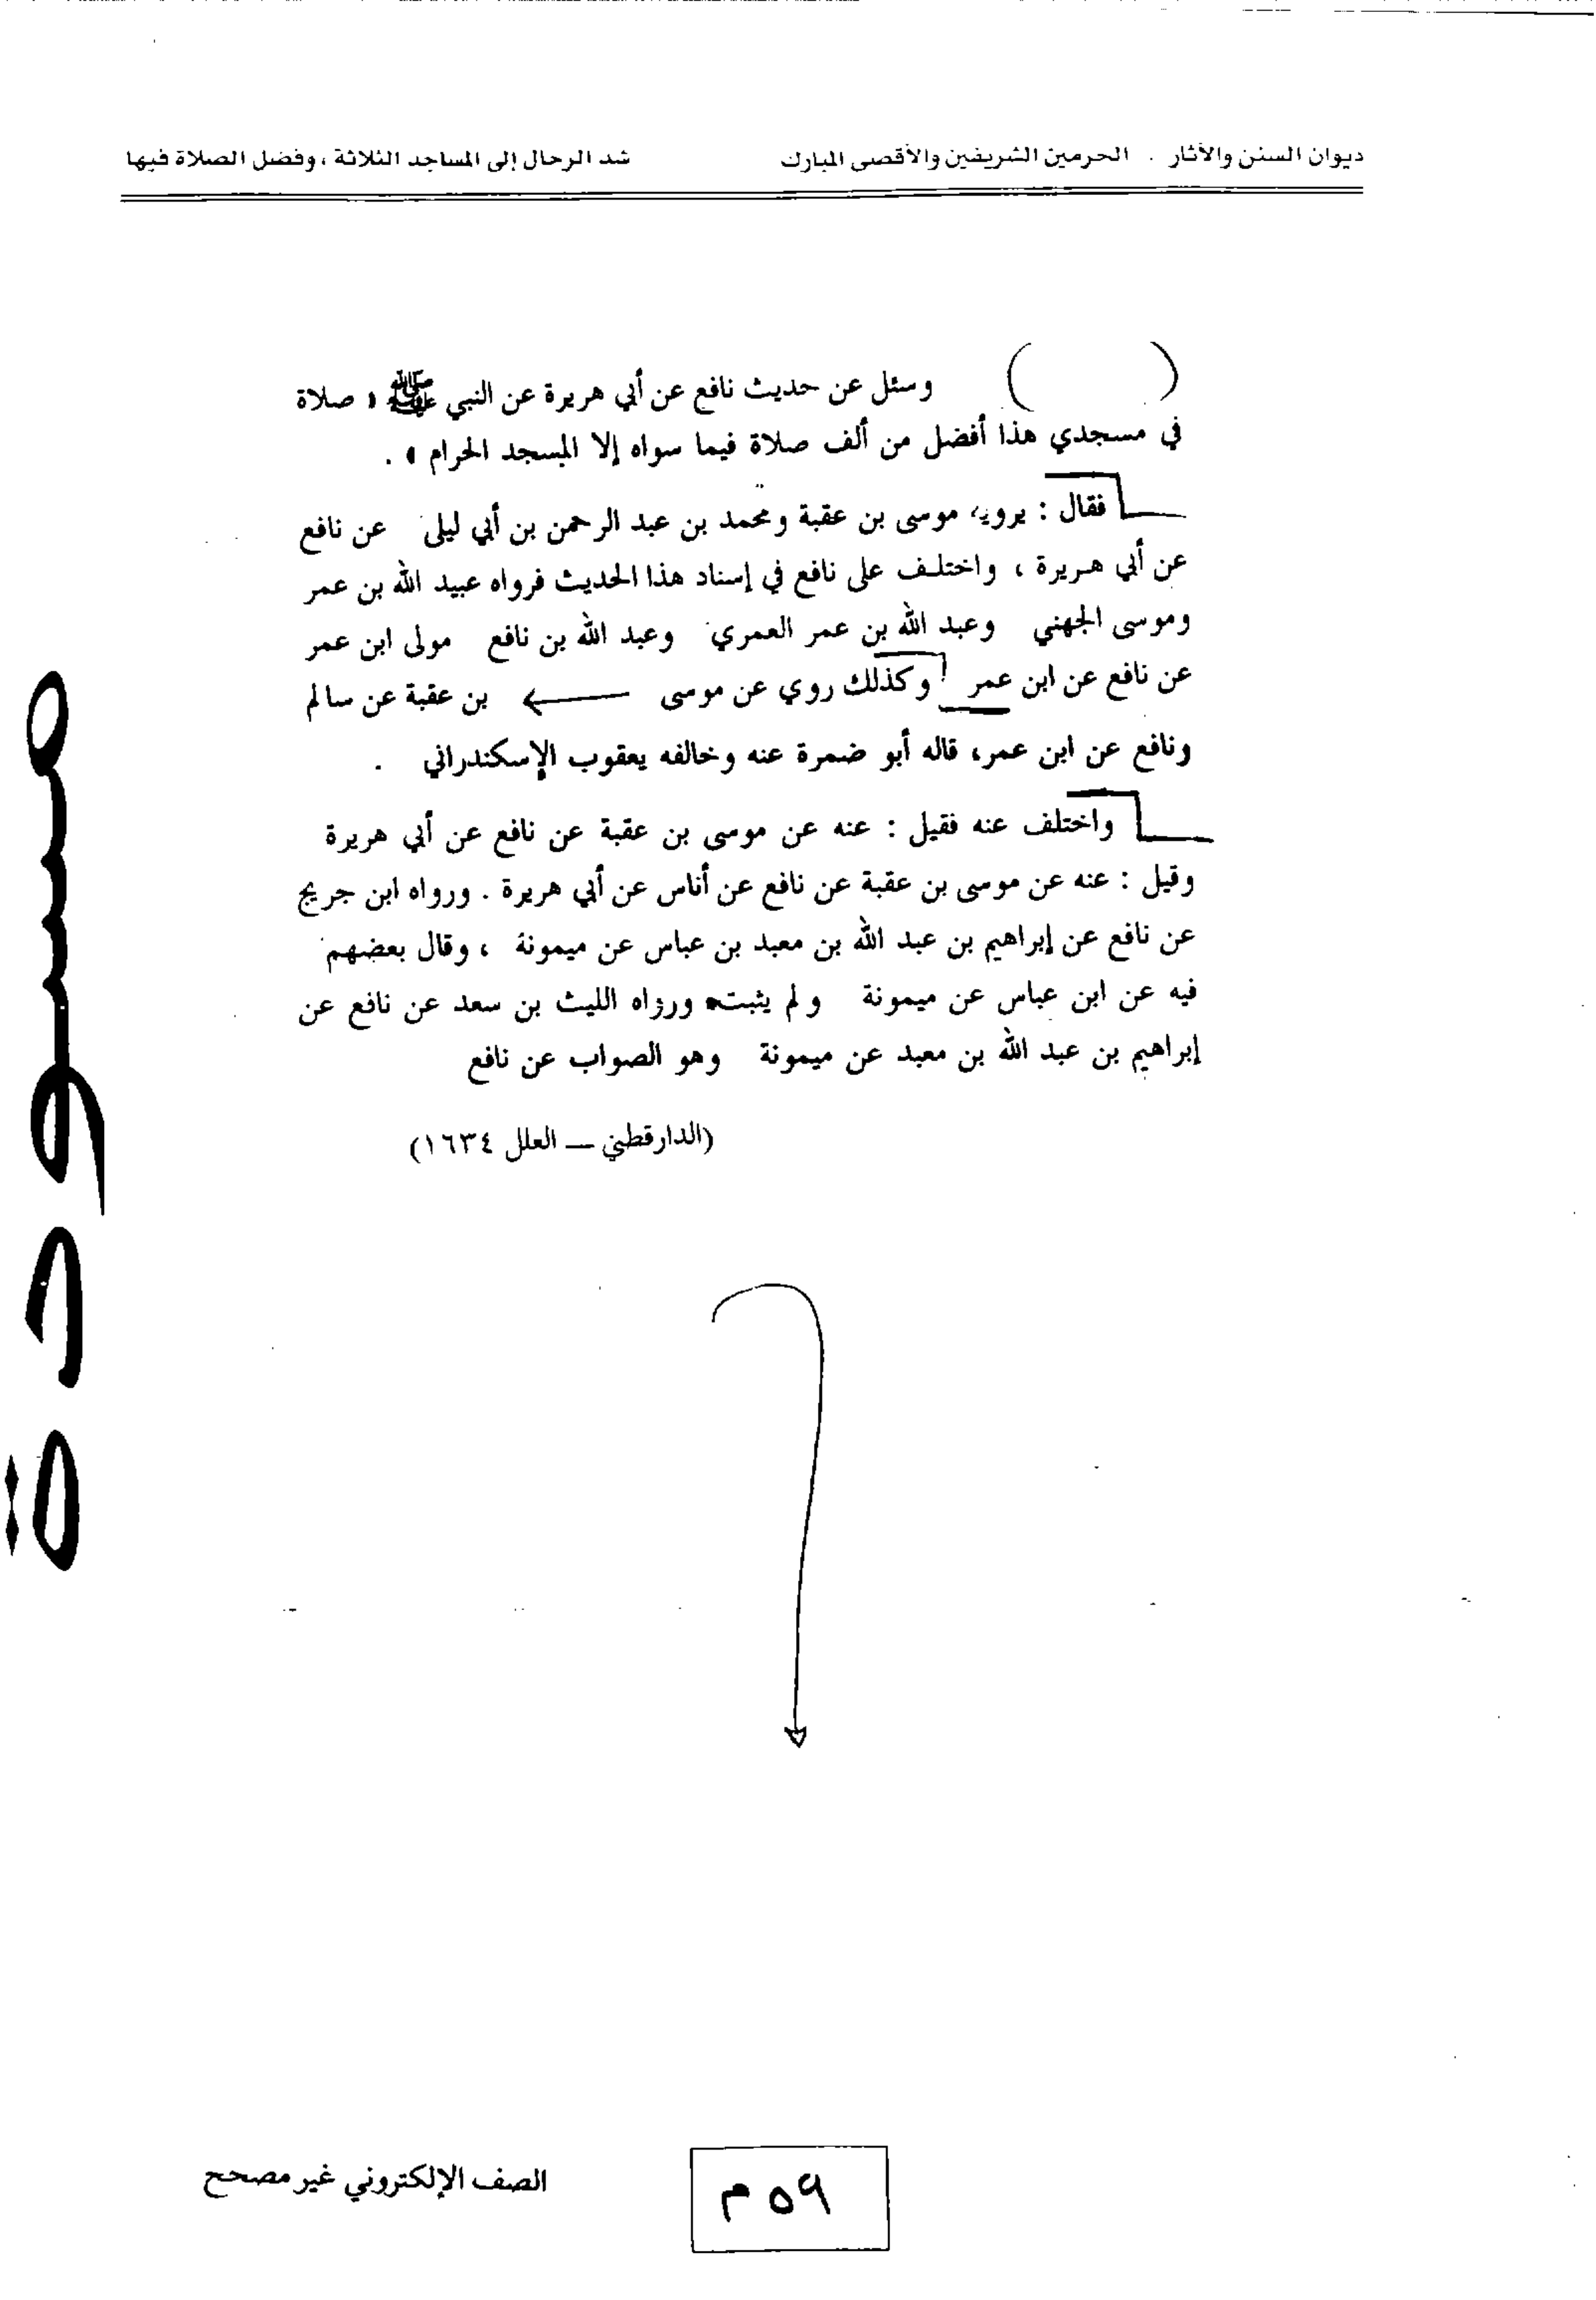 ديوان السنن والآثار . الحرمين الشريفين والأقصى المبارك شد الرحال إلى المساجد الثلاثة ، وفضل الصلاة فيها
( ) وسئل عن حديث نافع عن أبي هريرة عن النبي ﷺ « صلاة
في مسجدي هذا أفضل من ألف صلاة فيما سواه إلا المسجد الحرام » .
فقال : يرويه موسى بن عقبة ومحمد بن عبد الرحمن بن أبي ليلى عن نافع
عن أبي هريرة ، واختلف على نافع في إسناد هذا الحديث فرواه عبيد الله بن عمر
وموسى الجهني وعبد الله بن عمر العمري وعبد الله بن نافع مولى ابن عمر
عن نافع عن ابن عمر وكذلك روي عن موسى بن عقبة عن سالم
ونافع عن ابن عمر، قاله أبو ضمرة عنه وخالفه يعقوب الإسكندراني .
واختلف عنه فقيل : عنه عن موسى بن عقبة عن نافع عن أبي هريرة
وقيل : عنه عن موسى بن عقبة عن نافع عن أناس عن أبي هريرة . ورواه ابن جريج
عن نافع عن إبراهيم بن عبد الله بن معبد بن عباس عن ميمونة ، وقال بعضهم
فيه عن ابن عباس عن ميمونة ولم يثبت، ورواه الليث بن سعد عن نافع عن
إبراهيم بن عبد الله بن معبد عن ميمونة وهو الصواب عن نافع
(الدارقطني – العلل ١٦٣٤)
مسودة
٥٩ م
الصف الإلكتروني غير مصحح